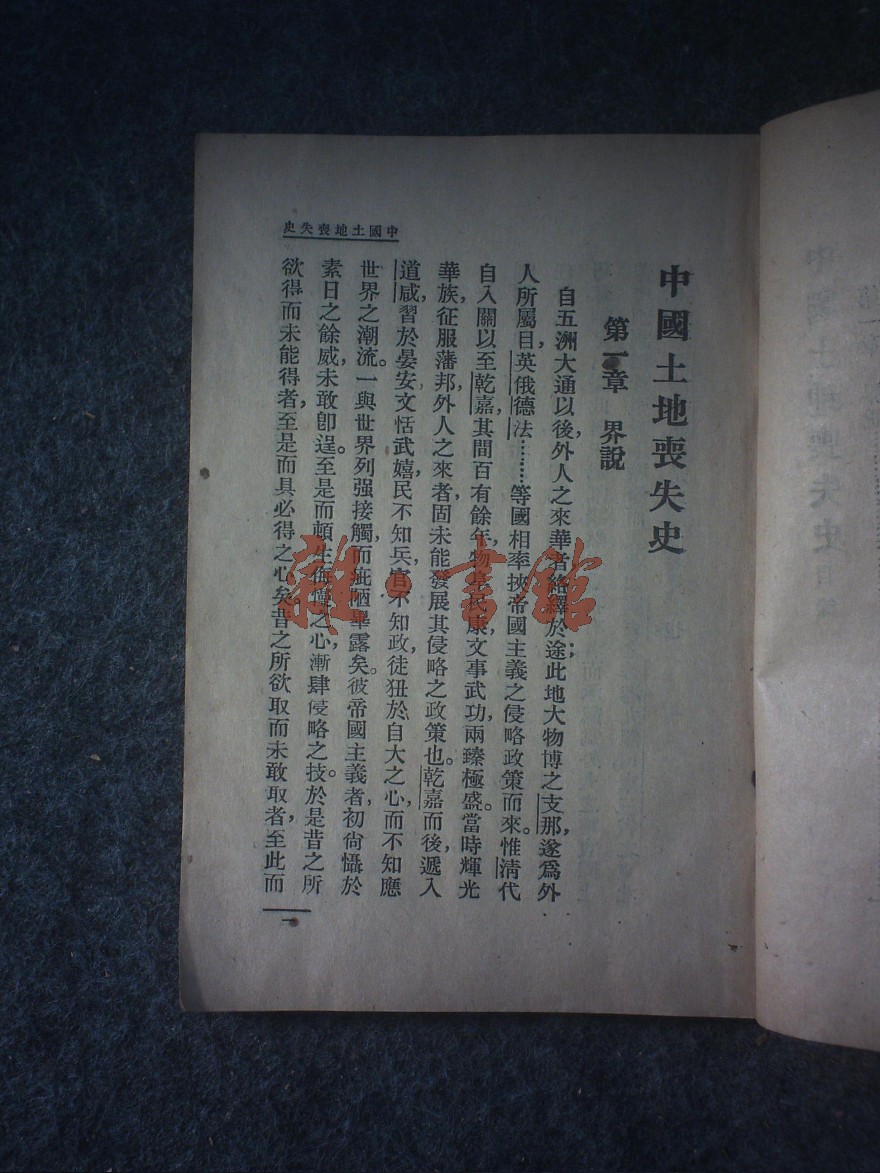 中國土地喪失史
第一章 界說
自五洲大通以後,外人之來華者絡繹於途;此地大物博之支那,遂爲外
人所屬目,英俄德法………等國相率挾帝國主義之侵略政策而來。惟清代
自入關以至乾嘉,其間百有餘年,物阜民康,文事武功,兩臻極盛。當時輝光
華族,征服藩邦,外人之來者,固未能發展其侵略之政策也。乾嘉而後,遞入
道咸,習於晏安,文恬武嬉,民不知兵,官不知政,徒狃於自大之心,而不知應
世界之潮流。一與世界列强接觸,而疵陋畢露矣。彼帝國主義者,初尙懾於
素日之餘威,未敢卽逞。至是而頓生侮慢之心,漸肆侵略之技。於是昔之所
欲得而未能得者,至是而具必得之心矣。昔之所欲取而未敢取者,至此而
中國土地喪失史
一
雜·書館